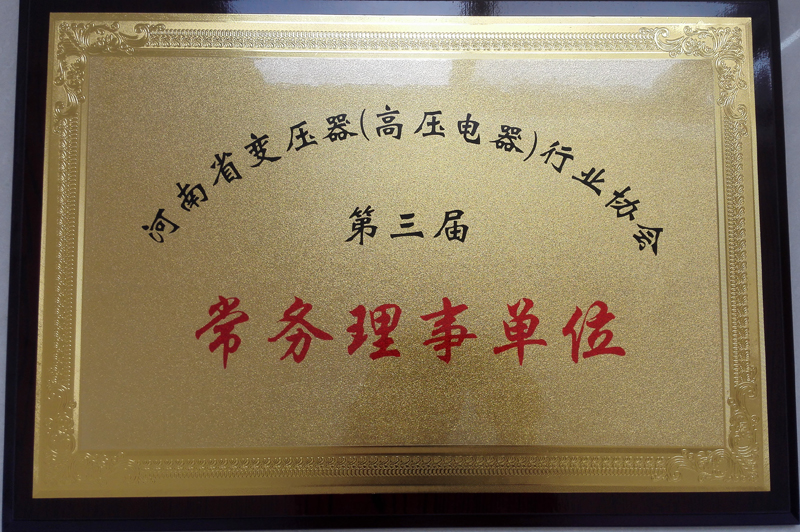 河南省变压器(高压电器)行业协会
第三届
常务理事单位